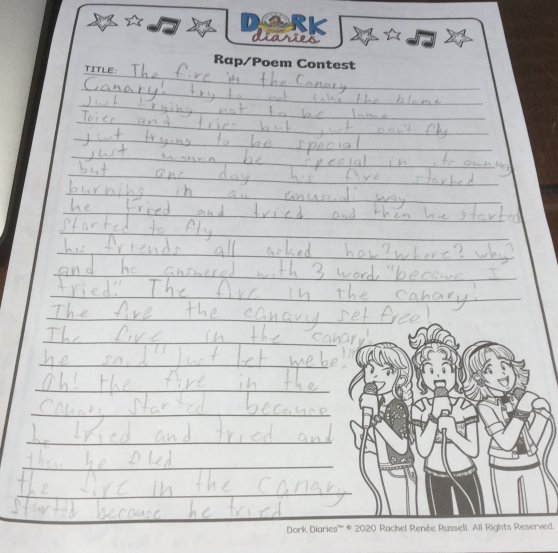 DORK
diaries
Rap/Poem Contest
TITLE: The fire in the Canary
Canary! try to not take the blame
just trying not to be lame
Tries and tries but just can't fly
just trying to be special
just wanna be special in its own way
but one day his fire started
burning in an unusual way
he tried and tried and then he started
started to fly
his friends all asked how? where? why?
and he answered with 3 words "because I
tried." The fire in the canary!
The fire the canary set free!
The fire in the canary!
he said "Just let me be!"
Oh! the fire in the
canary started because
he tried and tried and
then he fled
the fire in the canary
started because he tried
Dork Diaries™ © 2020 Rachel Renée Russell. All Rights Reserved.